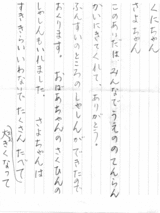 くにちゃん
さよちゃん
このあいだは みんなで うえののてんらん
かいにきてくれて、ありがとう。
ぶんすいのところの しゃしんが できたので
おくります。おばあちゃんの さくひんの
しゃしんも いれました。 さよちゃんは
すききらい いわないで たくさん たべて
大きくなって